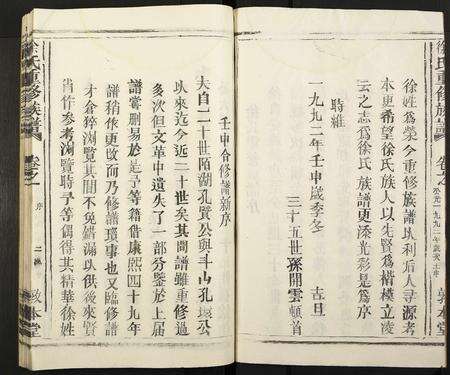 徐姓為榮今重修族譜以利后人寻源考
本更希望徐氏族人以先賢為楷模立凌
云之志為徐氏族譜更添光彩是為序
時維
一九九二年壬申歲季冬 吉旦
三十五世孫開雲頓首
徐氏重修族譜
卷之一
敦本堂
壬申合修譜新序
夫自二十世陌湖孔賢公與斗山孔 公
以來迄今近二十世矣其間譜雖重修過
多次但文革中遺失了一部分鑒於上届
譜嘗删易於是予等籍借康熙四十九年
譜稍作更改而乃修譜瑣事也又臨修譜
才倉猝浏覽其間不免錯漏以供後來賢
肖作参考浏覽時予等偶得其精華徐姓
徐氏重修族譜
卷之一
序
敦本堂